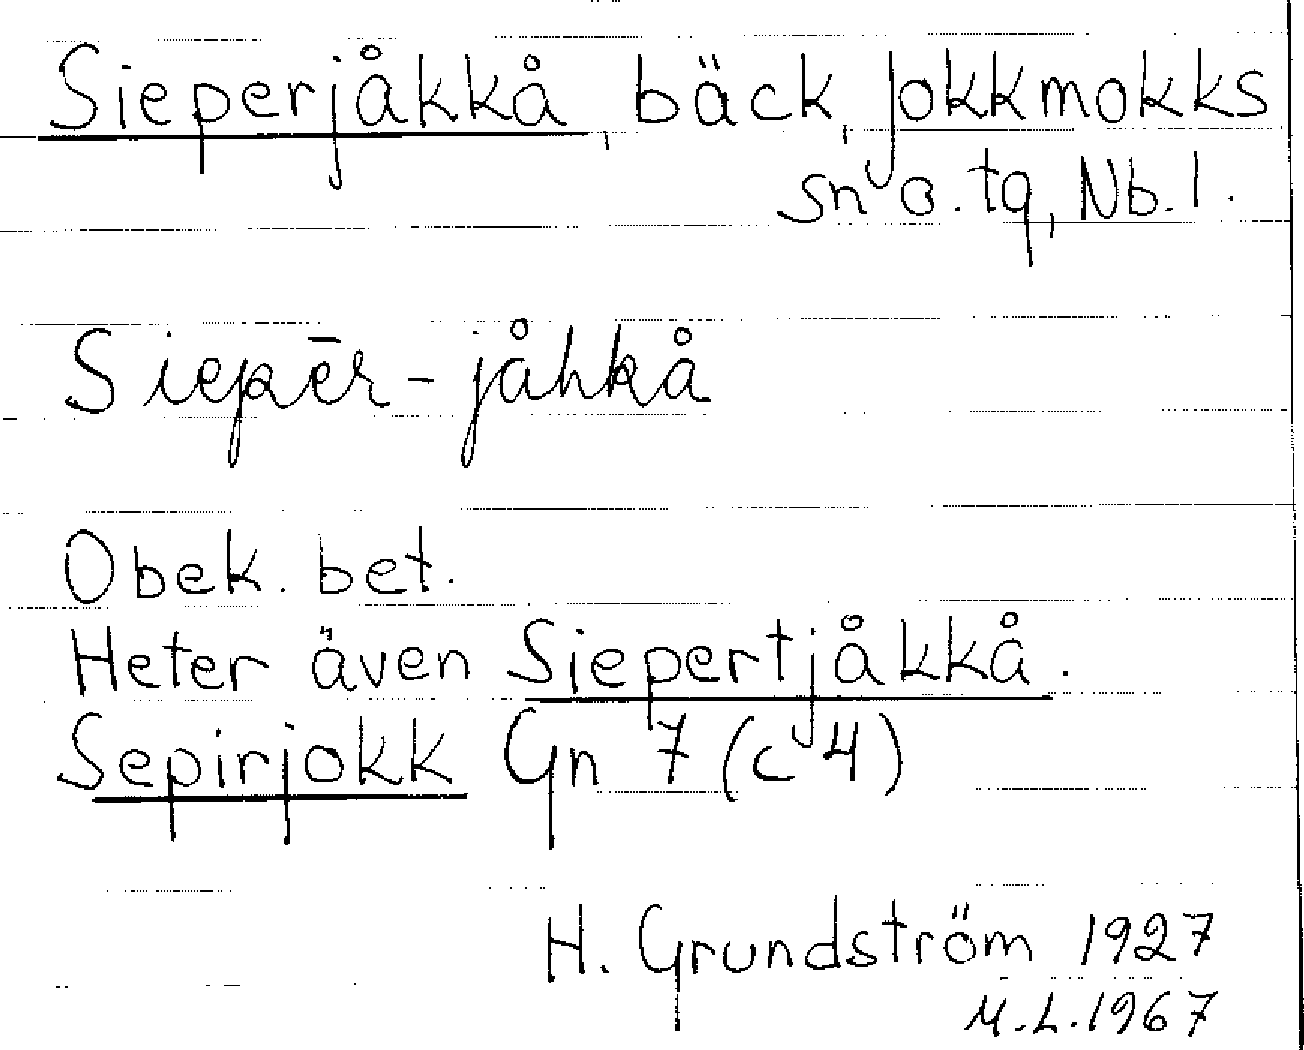 Sieperjåkkå, bäck, Jokkmokks
sn o. tg, Nb. l.
Siepēr-jåhkå
Obek. bet.
Heter även Siepertjåkkå.
Sepirjokk Gn 7 (c 4)
H. Grundström 1927
M.L. 1967